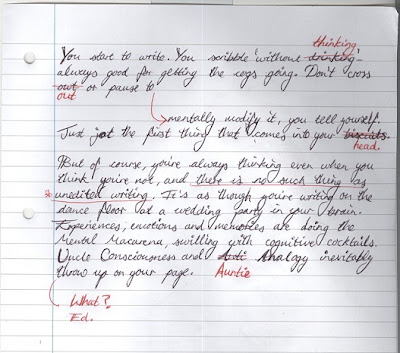 thinking
You start to write. You scribble 'without drinking' -
always good for getting the cogs going. Don't cross
owt or pause to
out
mentally modify it, you tell yourself.
Just jot the first thing that comes into your biscuits.
head.
But of course, you're always thinking even when you
think you're not, and there is no such thing as
unedited writing. It's as though you're writing on the
dance floor at a wedding party in your brain.
Experiences, emotions and memories are doing the
Mental Macarena, swilling with cognitive cocktails.
Uncle Consciousness and Anti Analogy inevitably
throw up on your page. Auntie
What?
Ed.